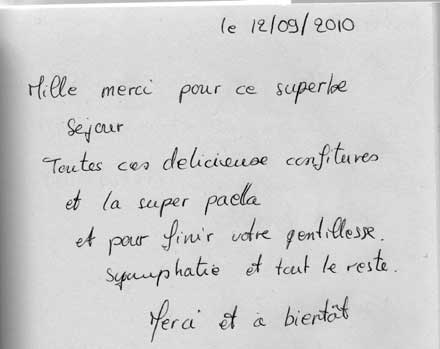 le 12/09/2010
Mille merci pour ce superbe
séjour
Toutes ces delicieuse confitures
et la super paella
et pour finir votre gentillesse.
Symphatie et tout le reste.
Merci et à bientôt